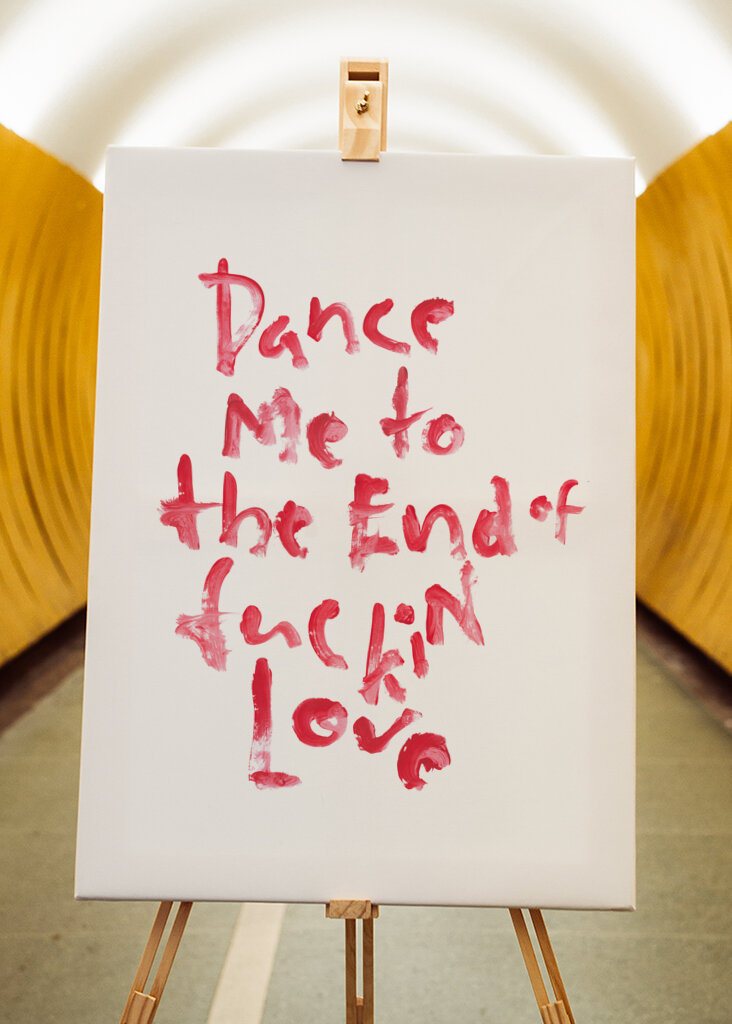 Dance
Me to
the End of
fuckiN
Love